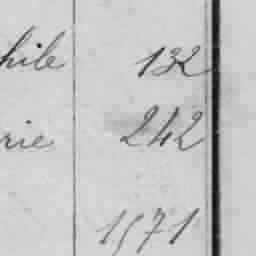 hile 132
rie 242
1571